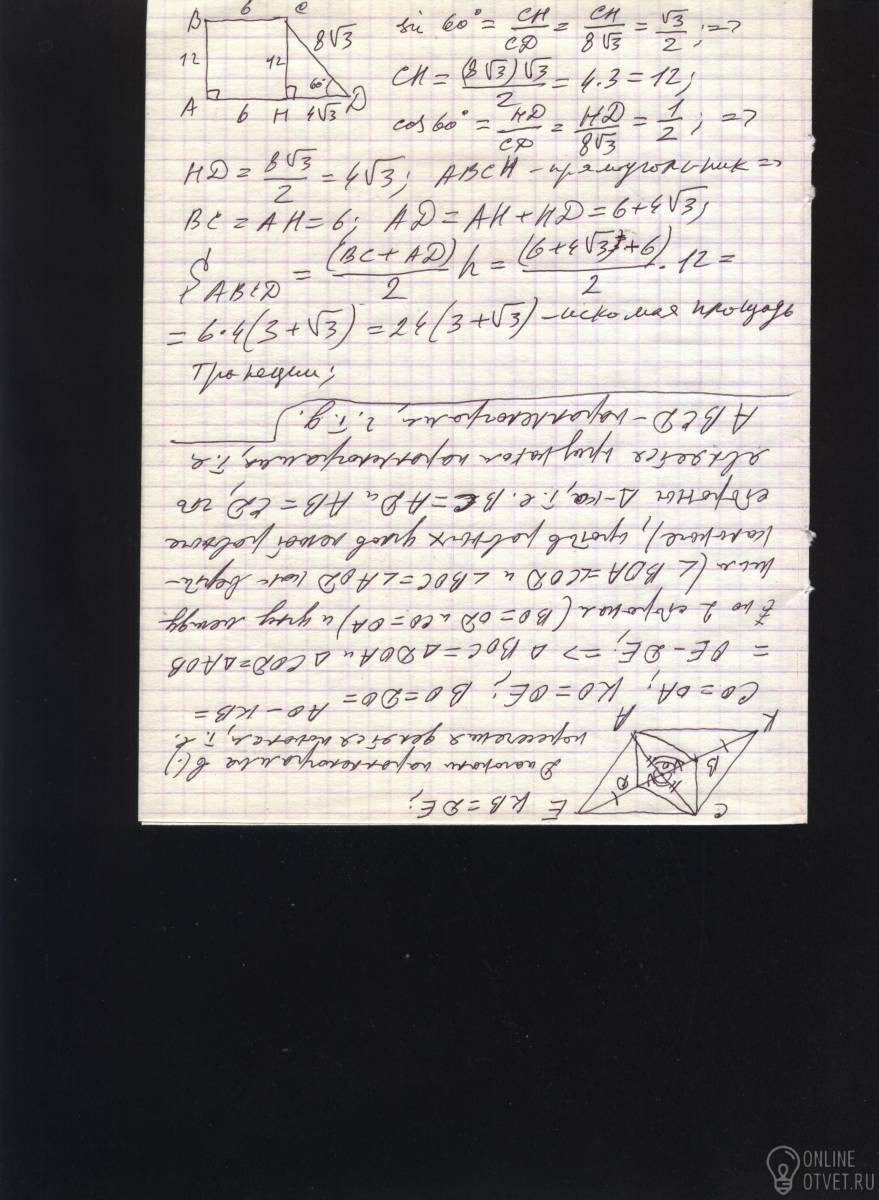 B 6 C
12 12 8√3
60°
A 6 H 4√3 D
sin 60° = CH/CD = CH/8√3 = √3/2 ; =>
CH = (8√3)√3/2 = 4·3 = 12;
cos 60° = HD/CD = HD/8√3 = 1/2 ; =>
HD = 8√3/2 = 4√3; ABCH - прямоугольник =>
BC = AH = 6; AD = AH + HD = 6+4√3;
S ABCD = (BC + AD)/2 · H = (6+4√3+6)/2 · 12 =
= 6·4(3+√3) = 24(3+√3) - искомая площадь
трапеции;
E KB = DE;
C
D O B
A K
Диагонали параллелограмма в (·)
пересечения делятся пополам, т.е.
CO = OA; KO = OE; BO = DO = AO - KB =
= OE - DE; => △ BOC = △ DOA и △ COD = △ AOB
по 2 сторонам (BO = OD и CO = OA) и углу между
ними (∠ BOA = ∠COD и ∠BOC = ∠AOD как верти-
кальные), против равных углов лежат равные
стороны △-ка, т.е. BC = AD и AB = CD, что
является признаком параллелограмма, т.е.
ABCD - параллелограмм, ч.т.д.
ONLINE
OTVET.RU